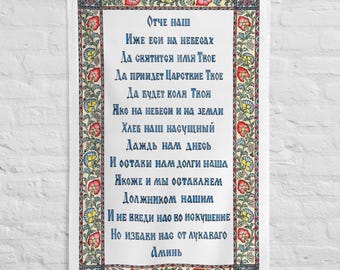 Отче наш
Иже еси на небесах
Да святится имя Твое
Да приидет Царствие Твое
Да будет воля Твоя
Яко на небеси и на земли
Хлеб наш насущный
Даждь нам днесь
И остави нам долги наша
Якоже и мы оставляем
Должником нашим
И не введи нас во искушение
Но избави нас от лукаваго
Аминь